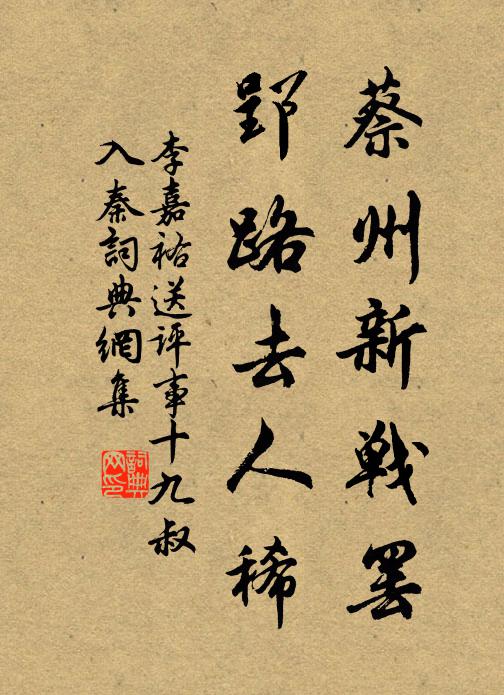 蔡州新戦罢
郢路去人稀
李嘉祐送评事十九叔
入秦詞典網集
詞典
网印